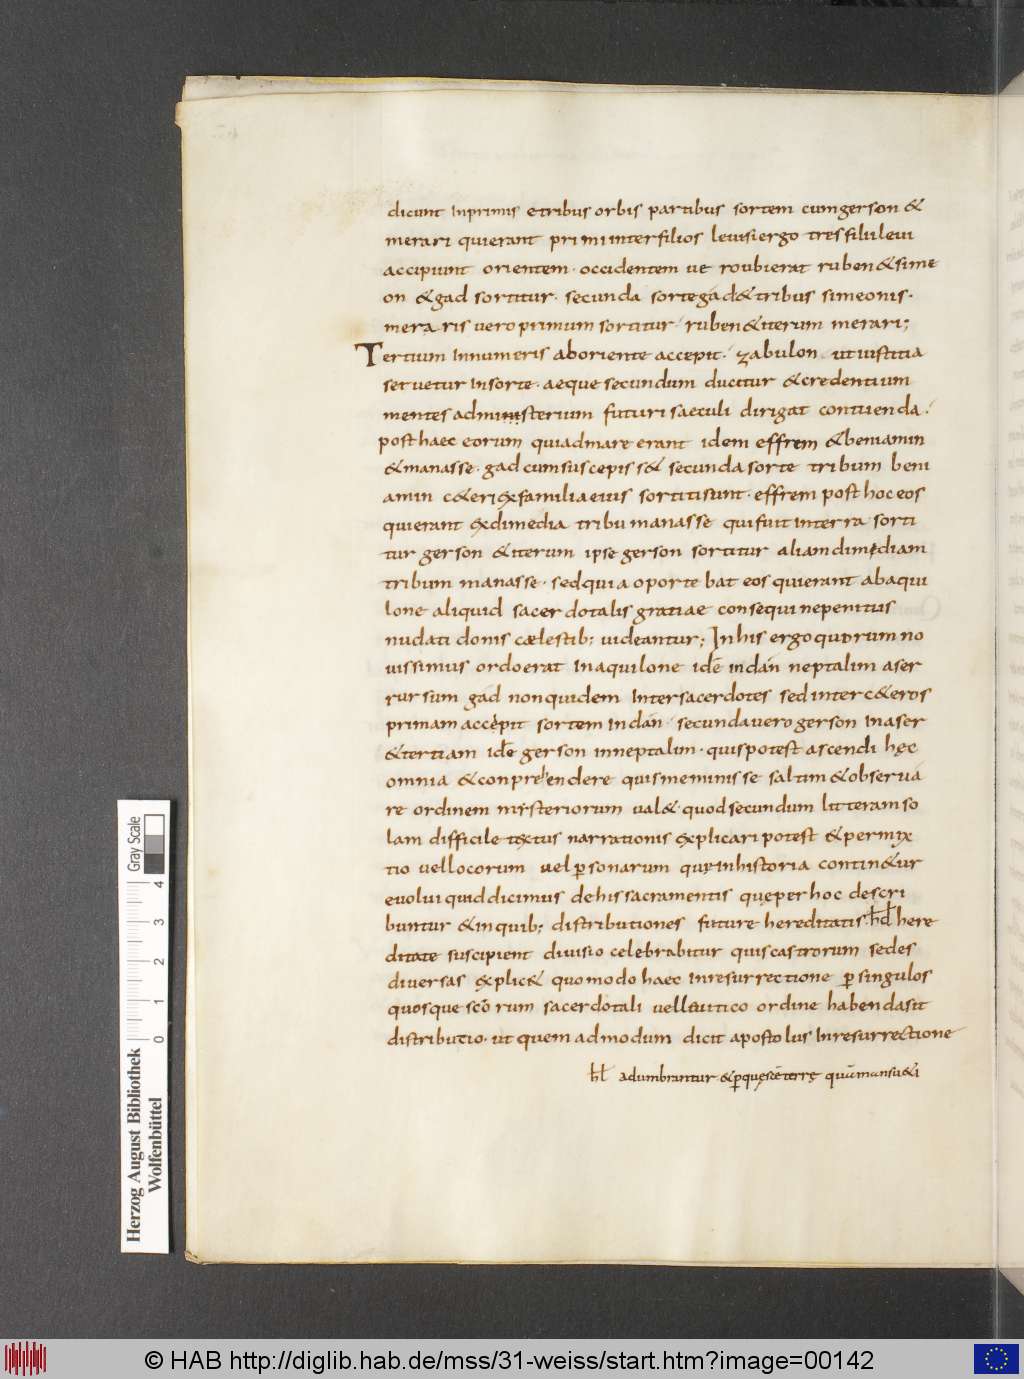 dicunt inprimis etribus orbis partibus sortem cumgerson &
merari quierant primi interfilios leuisiergo tresfilii leui
accipiunt orientem · occidentem ue roubierat ruben & sime
on & gad sortitur · secunda sorte gad & tribus simeonis ·
meraris uero primum sortitur · ruben & iterum merari;
Tertium innumeris aboriente accepit · zabulon ut iustitia
setuetur insorte · aeque secundum ducitur & credentium
mentes administerium futuri saeculi dirigat contuenda ·
posthaec eorum quiadmare erant idem effrem & beniamin
& manasse · gad cum suscepiss& secunda sorte tribum beni
amin c&eri exfamilia eius sortiti sunt · effrem posthoc eos
quierant exdimedia tribu manasse quifuit interra sorti
tur gerson & iterum ipse gerson sortitur aliam dimediam
tribum manasse · sedquia oportebat eos quierant abaqui
lone aliquid sacerdotalis gratiae consequi nepenitus
nudati donis cælestib; uideantur; Inhis ergo quorum no
uissimus ordo erat inaquilone idē indan neptalim aser
rursum gad nonquidem intersacerdotes sed inter c&eros
primam accepit sortem indan · secunda uero gerson inaser
& tertiam idē gerson inneptalim · quis potest ascendi hęc
omnia & conprehendere quis meminisse saltim & obserua
re ordinem mysteriorum ual& · quod secundum litteram so
lam difficile textus narrationis explicari potest & permix
tio uel locorum uel p̱sonarum quę inhistoria contin&ur
euolui quid dicimus dehis sacramentis quę per hoc descri
buntur & inquib; distributiones future hereditatis · h̄d here
ditate suscipient diuisio celebrabitur quis castrorum sedes
diuersas explic& quomodo haec inresurrectione p̱ singulos
quosque scōrum sacerdotali uel leuitico ordine habenda sit
distributio · ut quem admodum dicit apostolus Inresurrectione
h̄l adumbrantur & p̱quę scē terrę quā mansu&i
Herzog August Bibliothek
Wolfenbüttel
Gray Scale
0 1 2 3 4
© HAB http://diglib.hab.de/mss/31-weiss/start.htm?image=00142